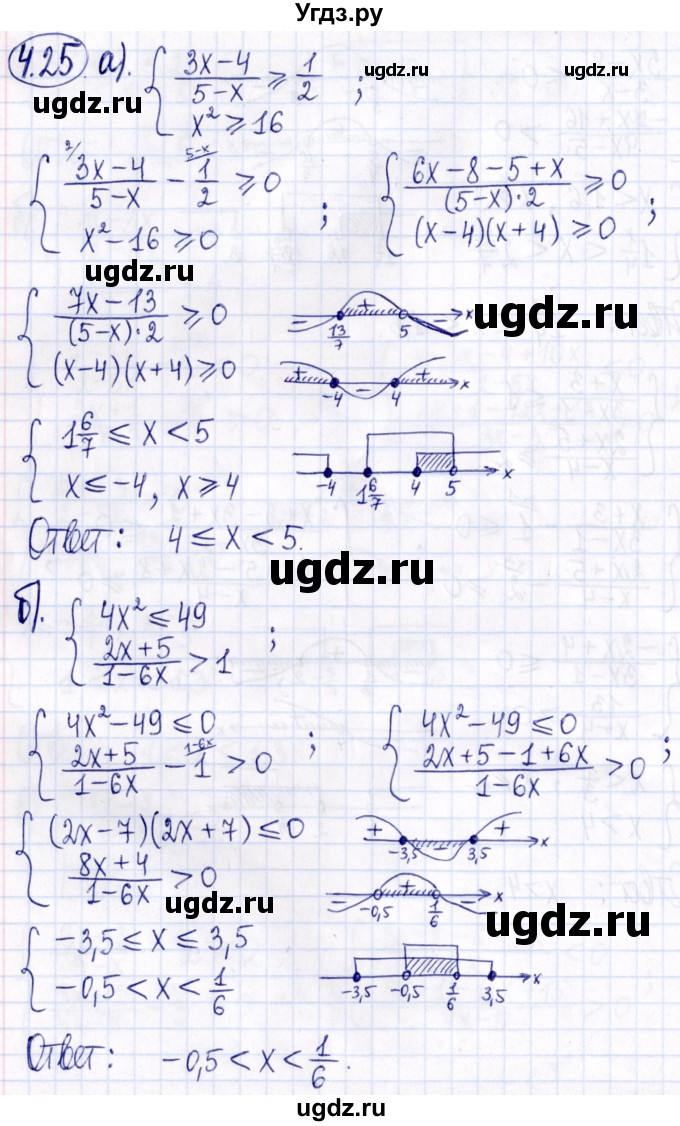 Угдз.ру
4.25 а). { (3x-4)/(5-x) ≥ 1/2 ; x² ≥ 16
ugdz.ru ugdz.ru ugdz.ru
{ ²/ (3x-4)/(5-x) - 5-x/ 1/2 ≥ 0 ; x²-16 ≥ 0
{ (6x-8-5+x)/((5-x)·2) ≥ 0 ; (x-4)(x+4) ≥ 0
ugdz.ru
{ (7x-13)/((5-x)·2) ≥ 0 ; (x-4)(x+4) ≥ 0
− 13/7 + 5 − x
ugdz.ru
+ -4 − 4 + x
{ 1 6/7 ≤ x < 5 ; x ≤ -4, x ≥ 4
-4 1 6/7 4 5 x
Ответ: 4 ≤ x < 5.
ugdz.ru
б). { 4x² ≤ 49 ; (2x+5)/(1-6x) > 1
ugdz.ru
{ 4x²-49 ≤ 0 ; (2x+5)/(1-6x) - 1-6x/ 1 > 0
{ 4x²-49 ≤ 0 ; (2x+5-1+6x)/(1-6x) > 0
{ (2x-7)(2x+7) ≤ 0 ; (8x+4)/(1-6x) > 0
+ -3,5 − 3,5 + x
− -0,5 + 1/6 − x
ugdz.ru
ugdz.ru
{ -3,5 ≤ x ≤ 3,5 ; -0,5 < x < 1/6
-3,5 -0,5 1/6 3,5 x
Ответ: -0,5 < x < 1/6.
ugdz.ru